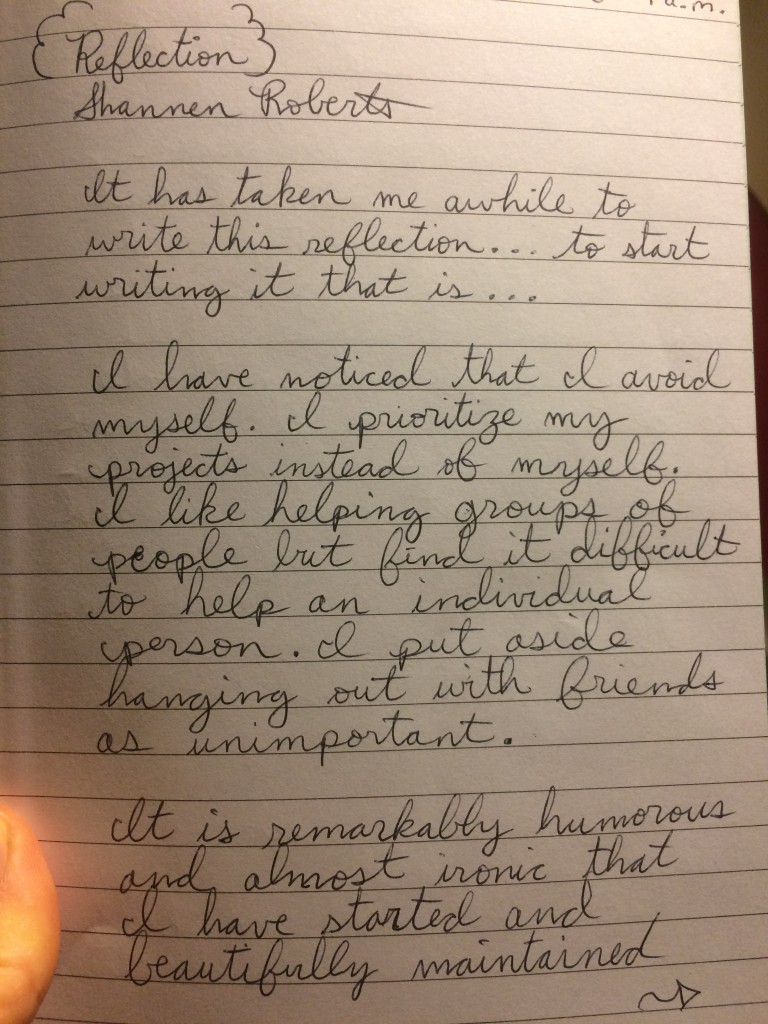 a.m.
{Reflection}
Shannen Roberts
It has taken me awhile to
write this reflection... to start
writing it that is...
I have noticed that I avoid
myself. I prioritize my
projects instead of myself.
I like helping groups of
people but find it difficult
to help an individual
person. I put aside
hanging out with friends
as unimportant.
It is remarkably humorous
and almost ironic that
I have started and
beautifully maintained